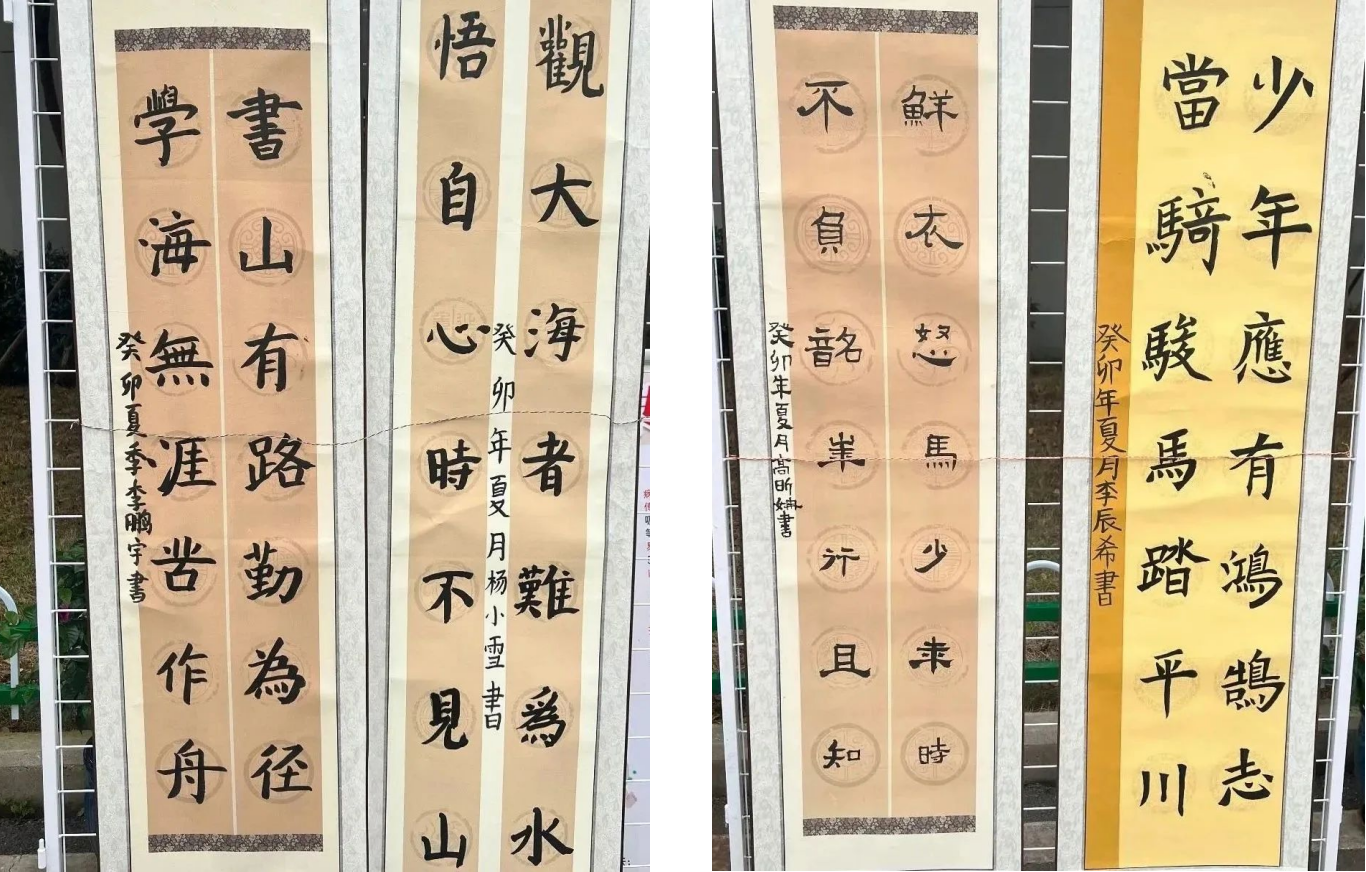 書山有路勤為径
學海無涯苦作舟
癸卯夏季李鹏宇書
觀大海者難爲水
悟自心時不見山
癸卯年夏月杨小雪書
鮮衣怒馬少年時
不負韶華行且知
癸卯年夏月高昕書
少年應有鴻鵠志
當騎駿馬踏平川
癸卯年夏月李辰希書